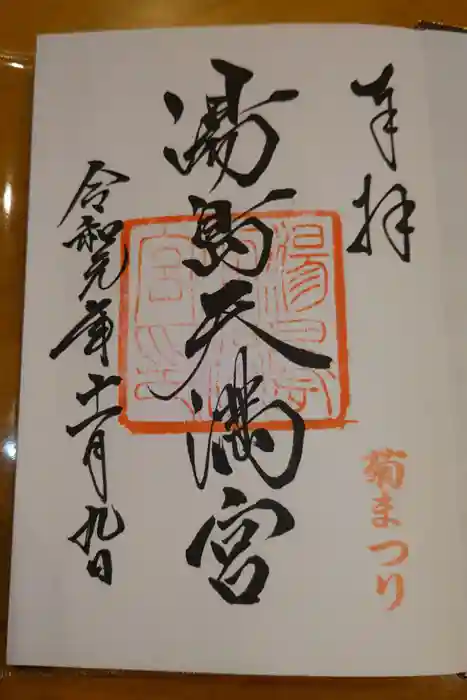 奉拝
菊まつり
湯島天満宮
令和元年十一月九日